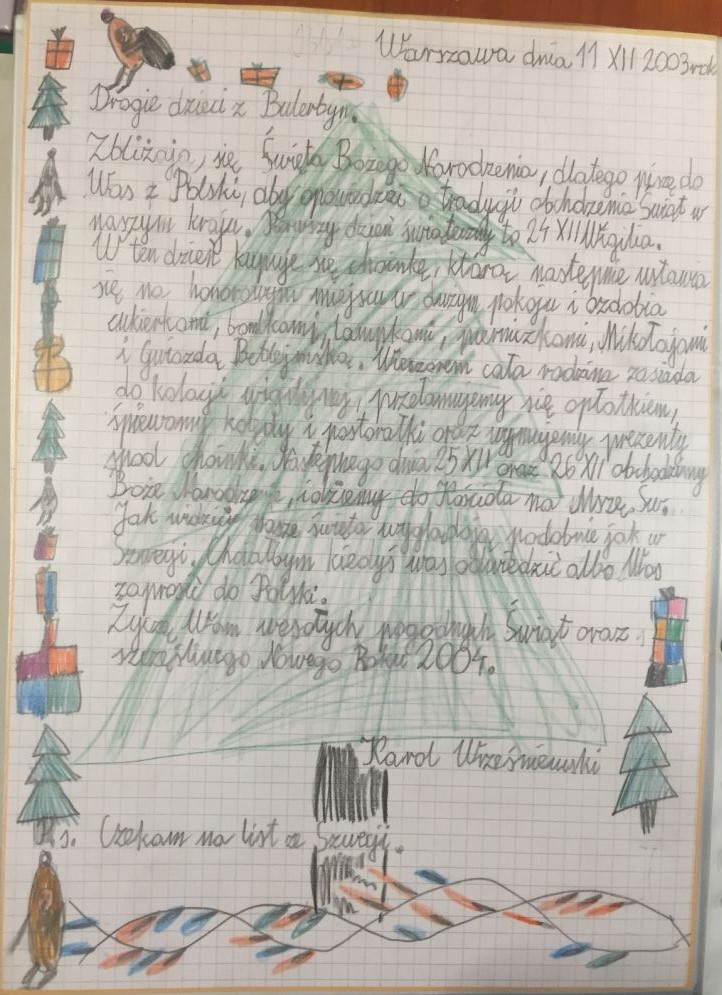 Warszawa dnia 11 XII 2003 rok
Drogie dzieci z Bulerbyn.
Zbliżają się Święta Bożego Narodzenia, dlatego piszę do
Was z Polski, aby opowiedzeć o tradycji obchdzenia Świąt w
naszym kraju. Pierwszy dzień świateczny to 24 XII Wigilia.
W ten dzień kupuje się choinkę, którą następnie ustawia
się na honorowym miejscu w dużym pokoju i ozdobia
cukierkami, bombkami, lampkami, pierniczkami, Mikołajami
i Gwiazdą Betlejmską. Wieczorem cała rodzina zasiada
do kolacji wigilijnej, przełamujemy się opłatkiem,
śpiewamy kolędy i pastorałki oraz wyjmujemy prezenty
spod choinki. Następnego dnia 25 XII oraz 26 XI obchodzimy
Boże Narodzenie, idziemy do Kościoła na Mszę Św.
Jak widzicie Nasze święta wyglądają podobnie jak w
Szwegi. Chciałbym kiedyś was odwiedzić albo Was
zaprosić do Polski.
Życzę Wam wesołych pogodnych Świąt oraz
szczęśliwego Nowego Roku 2004r.
Karol Wrześniewski
Ps. Czekam na list ze Szwegji.